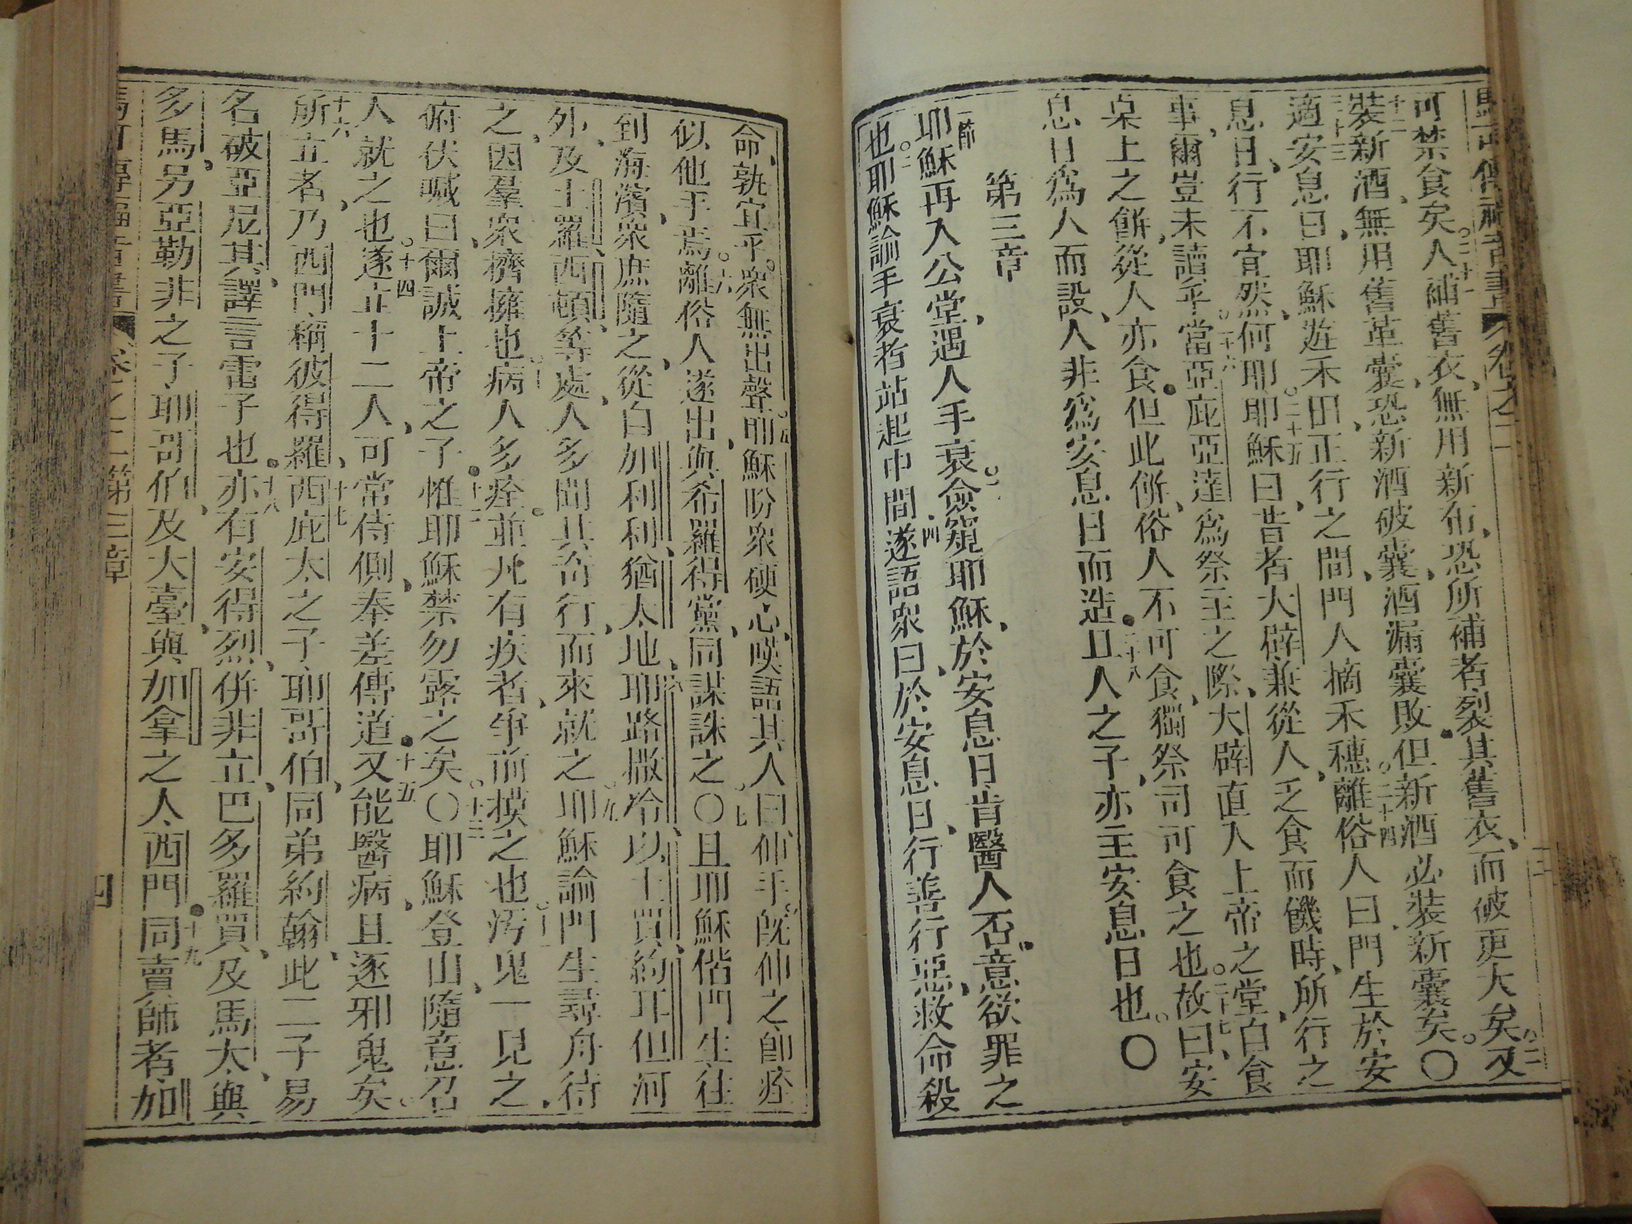 可禁食矣人補舊衣無用新布恐所補者裂其舊衣而破更大矣又
裝新酒無用舊革囊恐新酒破囊酒漏囊敗但新酒必裝新囊矣〇
適安息日耶穌遊禾田正行之間門人摘禾穗離俗人曰門生於安
息日行不宜然何耶耶穌曰昔者大辟兼從人乏食而饑時所行之
事爾豈未讀乎當亞庇亞達為祭主之際大辟直入上帝之堂自食
桌上之餅從人亦食但此餅俗人不可食獨祭司可食之也故曰安
息日為人而設人非為安息日而造且人之子亦主安息日也〇
第三章
一節
耶穌再入公堂遇人手衰僉窺耶穌於安息日肯醫人否意欲罪之
也耶穌諭手衰者站起中間遂語衆曰於安息日行善行惡救命殺
命孰宜乎衆無出聲耶穌盼衆硬心嘆語其人曰伸手旣伸之卽痊
似他手焉離俗人遂出與希羅得黨同謀誅之〇且耶穌偕門生往
到海濱衆庶隨之從自加利利猶太地耶路撒冷以土買約耳但河
外及土羅西頓等處人多聞其奇行而來就之耶穌諭門生尋舟待
之因羣衆擠擁也病人多痊並凡有疾者爭前摸之也汚鬼一見之
俯伏喊曰爾誠上帝之子惟耶穌禁勿露之矣〇耶穌登山隨意召
人就之也遂立十二人可常侍側奉差傳道又能醫病且逐邪鬼矣
所立者乃西門稱彼得羅西庇太之子耶哥伯同弟約翰此二子易
名破亞尼其譯言雷子也亦有安得烈併非立巴多羅買及馬太與
多馬另亞勒非之子耶哥伯及大臺與加拿之人西門同賣師者加
馬可傳福音書 卷之二第三章 四